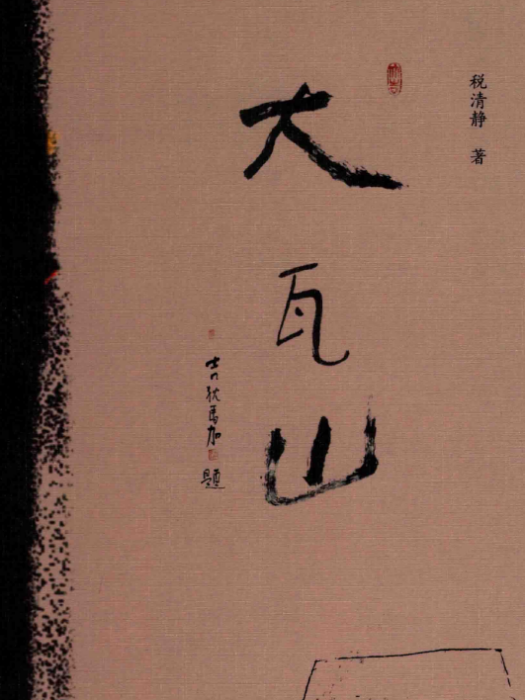 税清静 著
大瓦山
吉狄马加 题